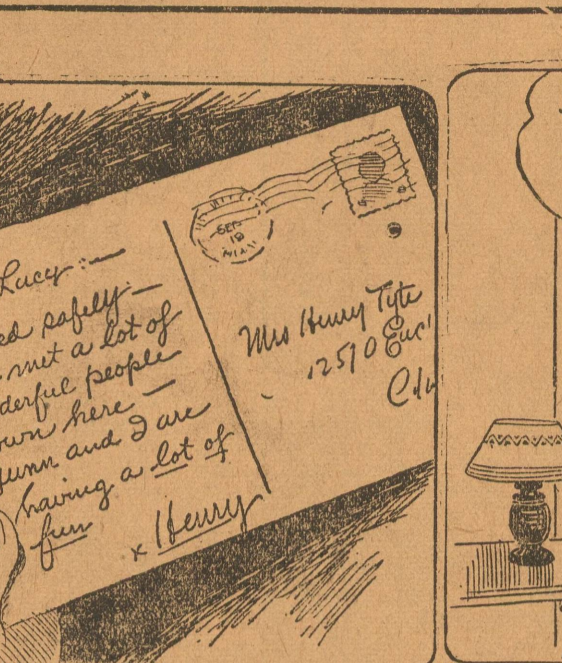 Lucy :—
ed safely —
met a lot of
derful people
own here —
and I are
having a lot of
fun
x Henry
SEP
18
Mrs Henry Tyte
12510 Euc